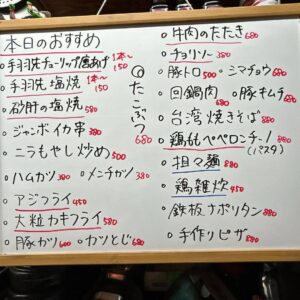 本日のおすすめ
・手羽先チューリップ唐あげ 1本〜150
・手羽先塩焼 1本〜150
・砂肝の塩焼 580
・ジャンボイカ串 380
・ニラもやし炒め 500
・ハムカツ 380 ・メンチカツ 380
・アジフライ 450
・大粒カキフライ 680
・豚カツ 600 ・カツとじ 680
◎たこぶつ 680
・牛肉のたたき 680
・チョリソー 380
・豚トロ 500 ・シマチョウ 680
・回鍋肉 680 ・豚キムチ 680
・台湾焼きそば 880
・鶏ももペペロンチーノ (パスタ) 880
・担々麺 880
・鶏雑炊 450
・鉄板ナポリタン 880
・手作りピザ 880